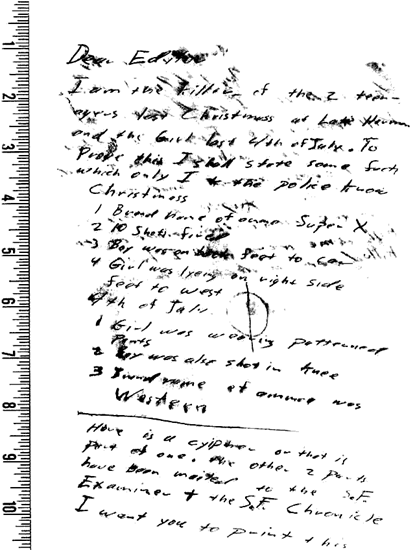 Dear Editor
I am the killer of the 2 teen-
agers last Christmass at Lake Herman
and the Girl last 4th of July. To
Prove this I shall state some facts
which only I + the police know
Christmass
1 Brand name of ammo Super X
2 10 Shots fired
3 Boy was on back feet to car
4 Girl was lyeing on right side
feet to west
4th of July
1 Girl was wearing patterned
Pants
2 Boy was also shot in knee
3 Brand name of ammo was
Western
Here is a cyipher or that is
part of one. the other 2 parts
have been mailed to the S.F.
Examiner + the S.F. Chronicle
I want you to print this
1
2
3
4
5
6
7
8
9
10